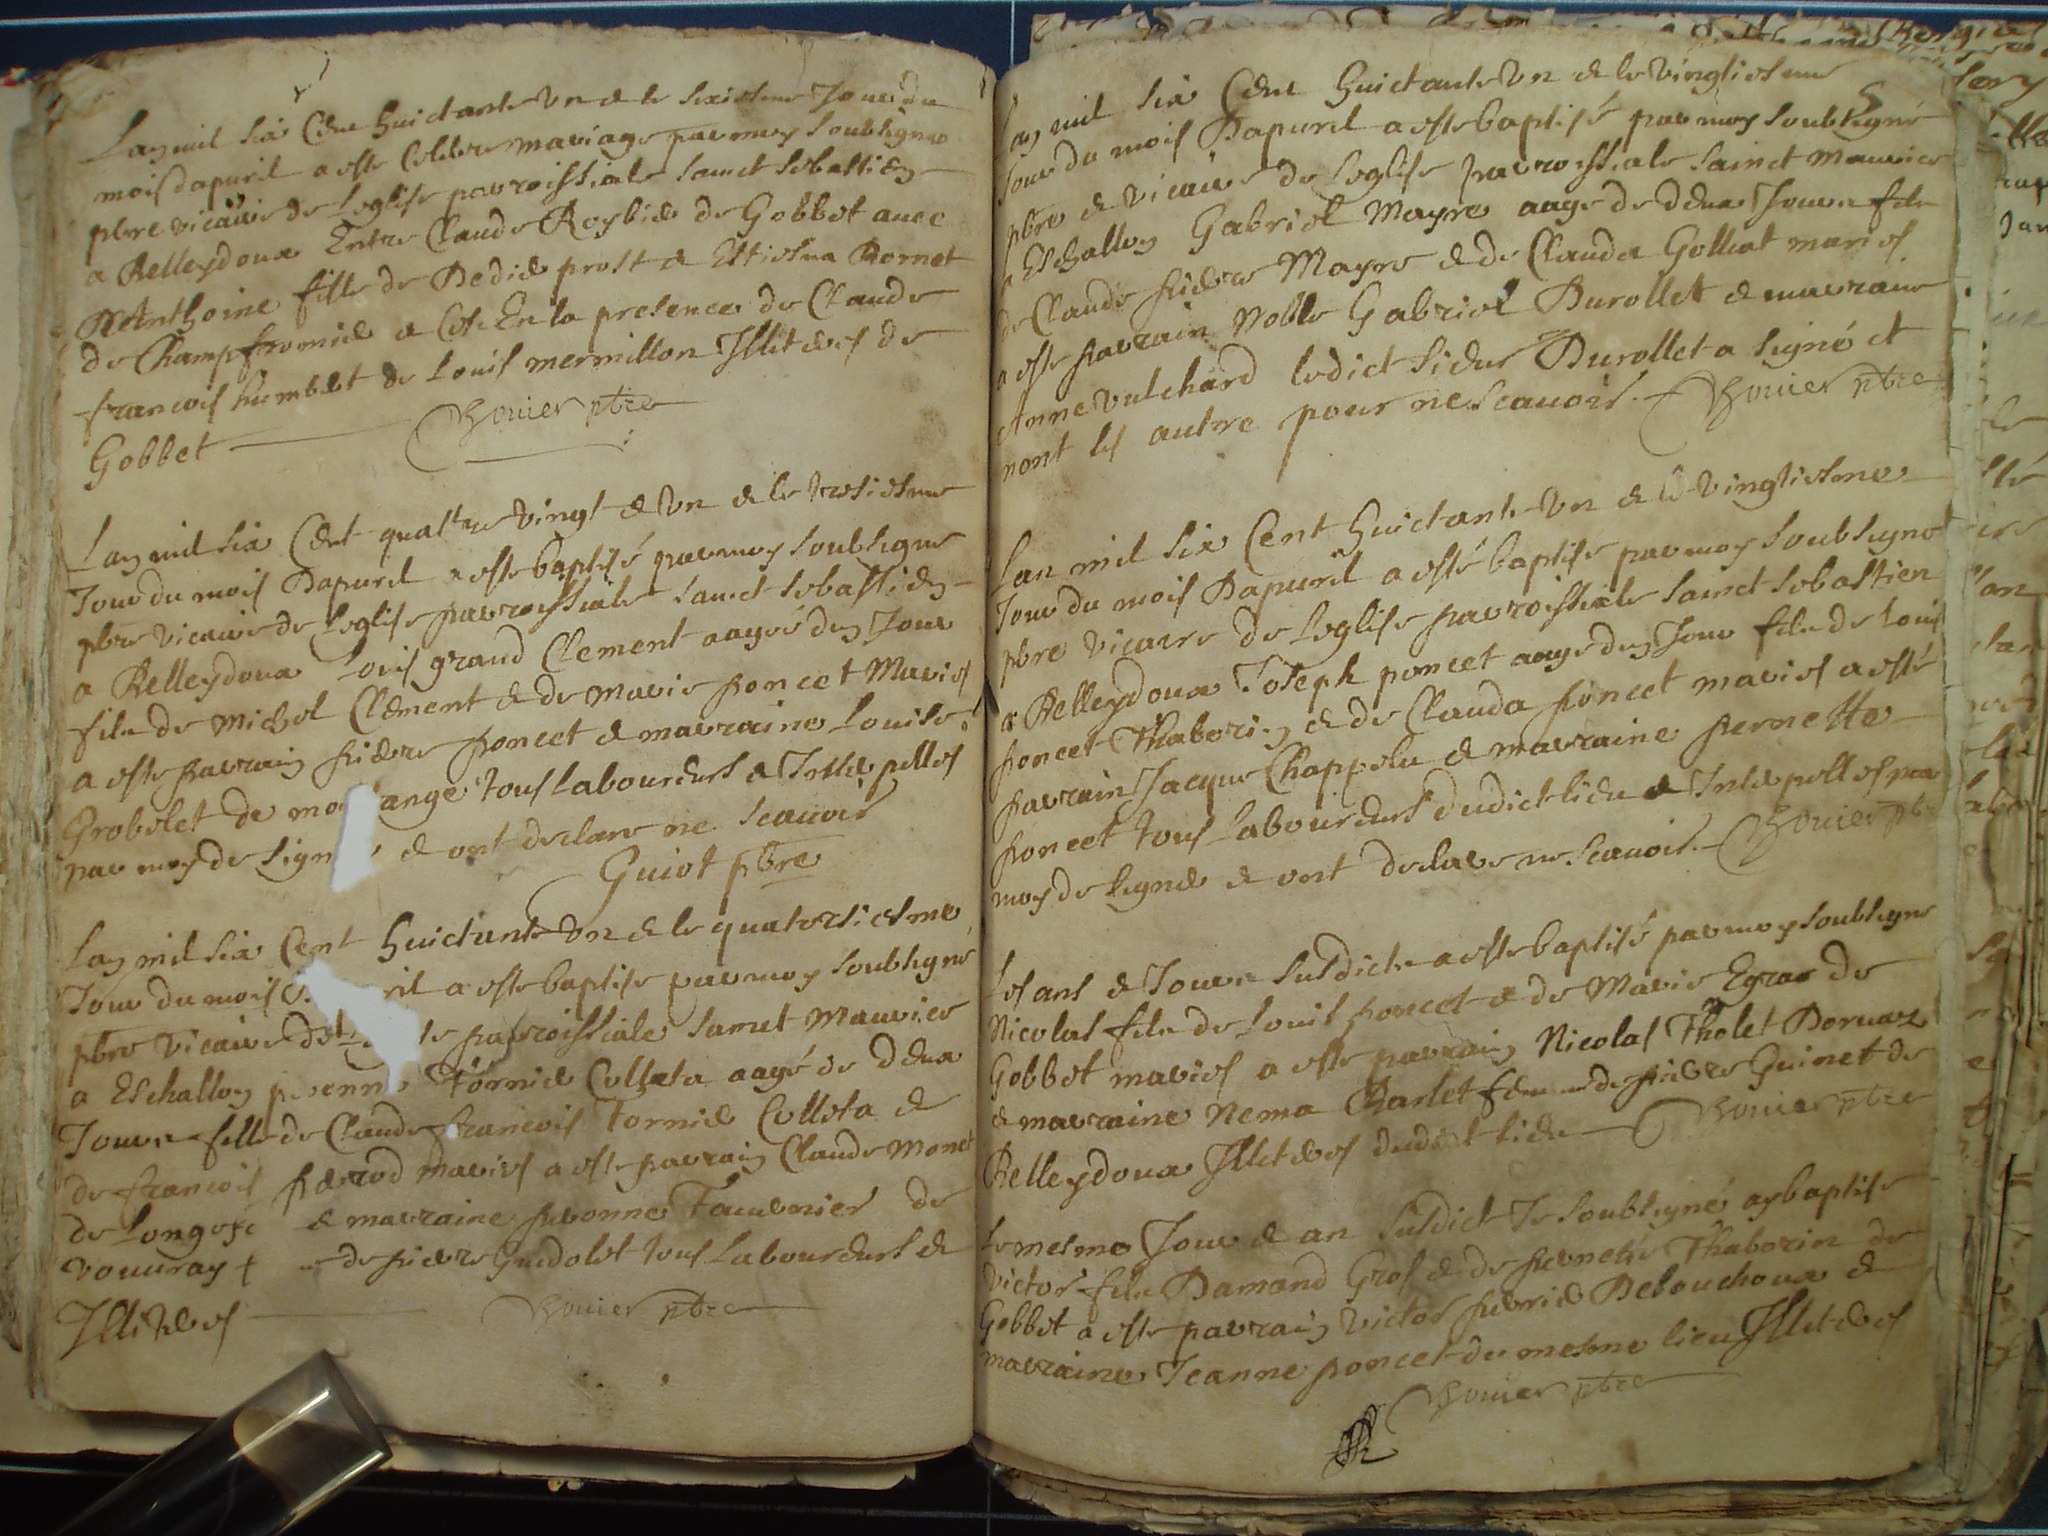 Lan mil six Cent huictante un & le sixiesme Jour du
mois dapuril a este Celebre mariage par moy soubsigne
pbre vicaire de Leglise parroissiale sainct sebastien
a Belleydoux Entre Claude Roybier de Gobbet avec
Anthoine fille de Dedier prost & Estiesna Bornet
de Champfromier a Coste En la presence de Claude
francois humbert de Louis mermillon Illiteres de
Gobbet
Bouier pbre
Lan mil six Cent quattre vingt & un & le tresiesme
Jour du mois Dapuril a este baptisé par moy soubsigne
pbre vicaire de Leglise parroissiale sainct sebastien
a Belleydoux Lovis grand Clement aagé den Jour
fils de Michel Clement & de Marie poncet Maries
a este parrain pierre poncet & marraine Louise
Grobelet de mo ange tous Laboureurs & Interpelles
par moy de signer & ont declare ne scauoir
Guiot pbre
Lan mil six Cent huictante un & le quatorsiesme
Jour du mois ril a este baptise par moy soubsigné
pbre vicaire de parroissiale sainct Maurice
a Eschallon Tornier Colleta aagé de deux
Jours fille de Claude francois Tornier Colleta &
de francois perrod maries a este parrain Claude Monet
de Longefé & marraine pivonne Tauernier de
vouuray de pierre Gudolet tous Laboureurs &
Illiteres
Bouier pbre
Lan mil six Cent huictante un & le vingtiesme
Jour du mois Dapuril a este baptisé par moy soubsigné
pbre & vicaire de Leglise parroissiale sainct Maurice
a Eschallon Gabriel Mayre aage de deux Jours fils
de Claude pierre Mayre & de Clauda Golliat maries
a este parrain Noble Gabriel Durollet & marraine
Anne vulchard ledict sieur Durollet a signé et
nont les autre pour ne scauoir. Bouier pbre
Lan mil six Cent huictante un & le vingtiesme
Jour du mois Dapuril a esté baptise par moy soubsigne
pbre vicaire de Leglise parroissiale sainct sebastien
a Belleydoux Joseph poncet aage den Jour fils de Louis
poncet Thaborin & de Clauda poncet maries a esté
parrain Jacque Chappelu & marraine pernette
poncet tous Laboureurs dudict lieu & Interpelles par
moy de signer & ont declare ne scauoir. Bouier pbre
Les ans & Jours susdicts a este baptisé par moy soubsigne
Nicolas fils de Louis poncet & de Marie Egraz de
Gobbet maries a este parrain Nicolas Tholet Dornaz
& marraine Nema Charlet femme de pierre Guinet de
Belleydoux Illiteres dudict lieu Bouier pbre
Le mesme Jour & an susdict Je soubsigné ay baptise
victor fils Damand Gros & de pernette Thaborin de
Gobbet a este parrain victor perrier Debouchoux &
marraine Jeanne poncet du mesme lieu Illiteres
Bouier pbre